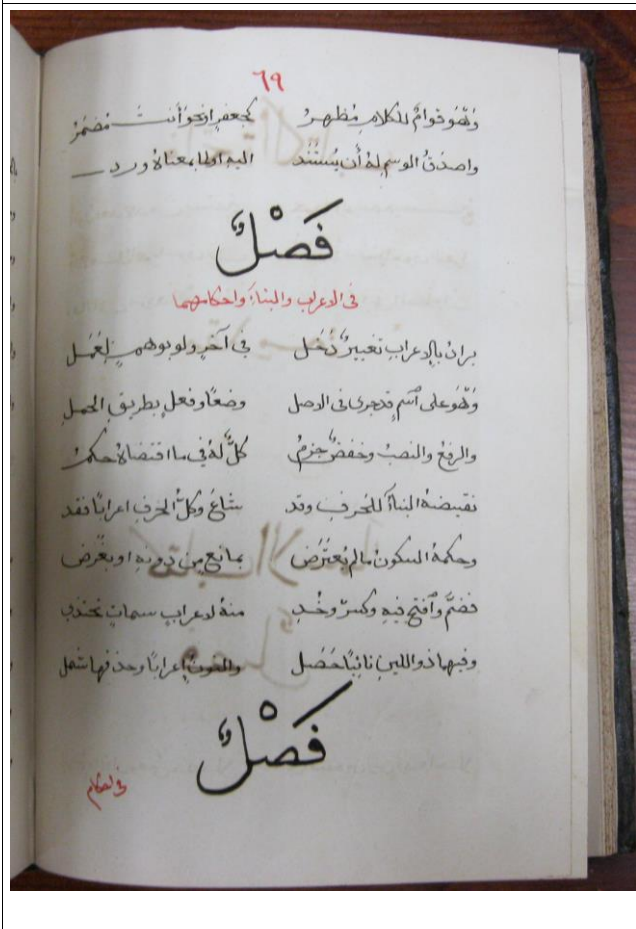 ٦٩
وَهْوَ قوامٌ للكلامِ مُظهرُ كجعفرٍ او نحو أنتَ مُضمَرُ
واصدقُ الوسمِ لهُ أن يُسنَدُ اليه او لما بمعناهُ ورد
فَصْلٌ
فى الاعراب والبناء واحكامهما
يرادُ بالاعرابِ تغييرٌ دَخَل فى آخرٍ ولو بوهمٍ لِعَمَل
وَهْوَ على ٱسمٍ قد جرى فى الاصل وضعًا وفعلٍ بطريقِ الحملِ
والرفعُ والنصبُ وخفضٌ جزمُ كلٌّ لهُ فى ما اقتضاهُ حكمُ
نقيضهُ البناءُ للحرفِ وقد شاعَ وكلُّ الحرفِ اعرابًا فقد
وحكمهُ السكونُ مالم يُعتَرَض بمانعٍ من دونهِ او بغَرَض
فضمَّ وٱفتح فيهِ وكسرٌ وخُذِ منهُ لاعرابٍ سماتٍ تحتذى
وفيهما ذو اللينِ نائبًا حَصَل والنونُ إعرابًا وحذفها شمل
فَصْلٌ
فى احكام